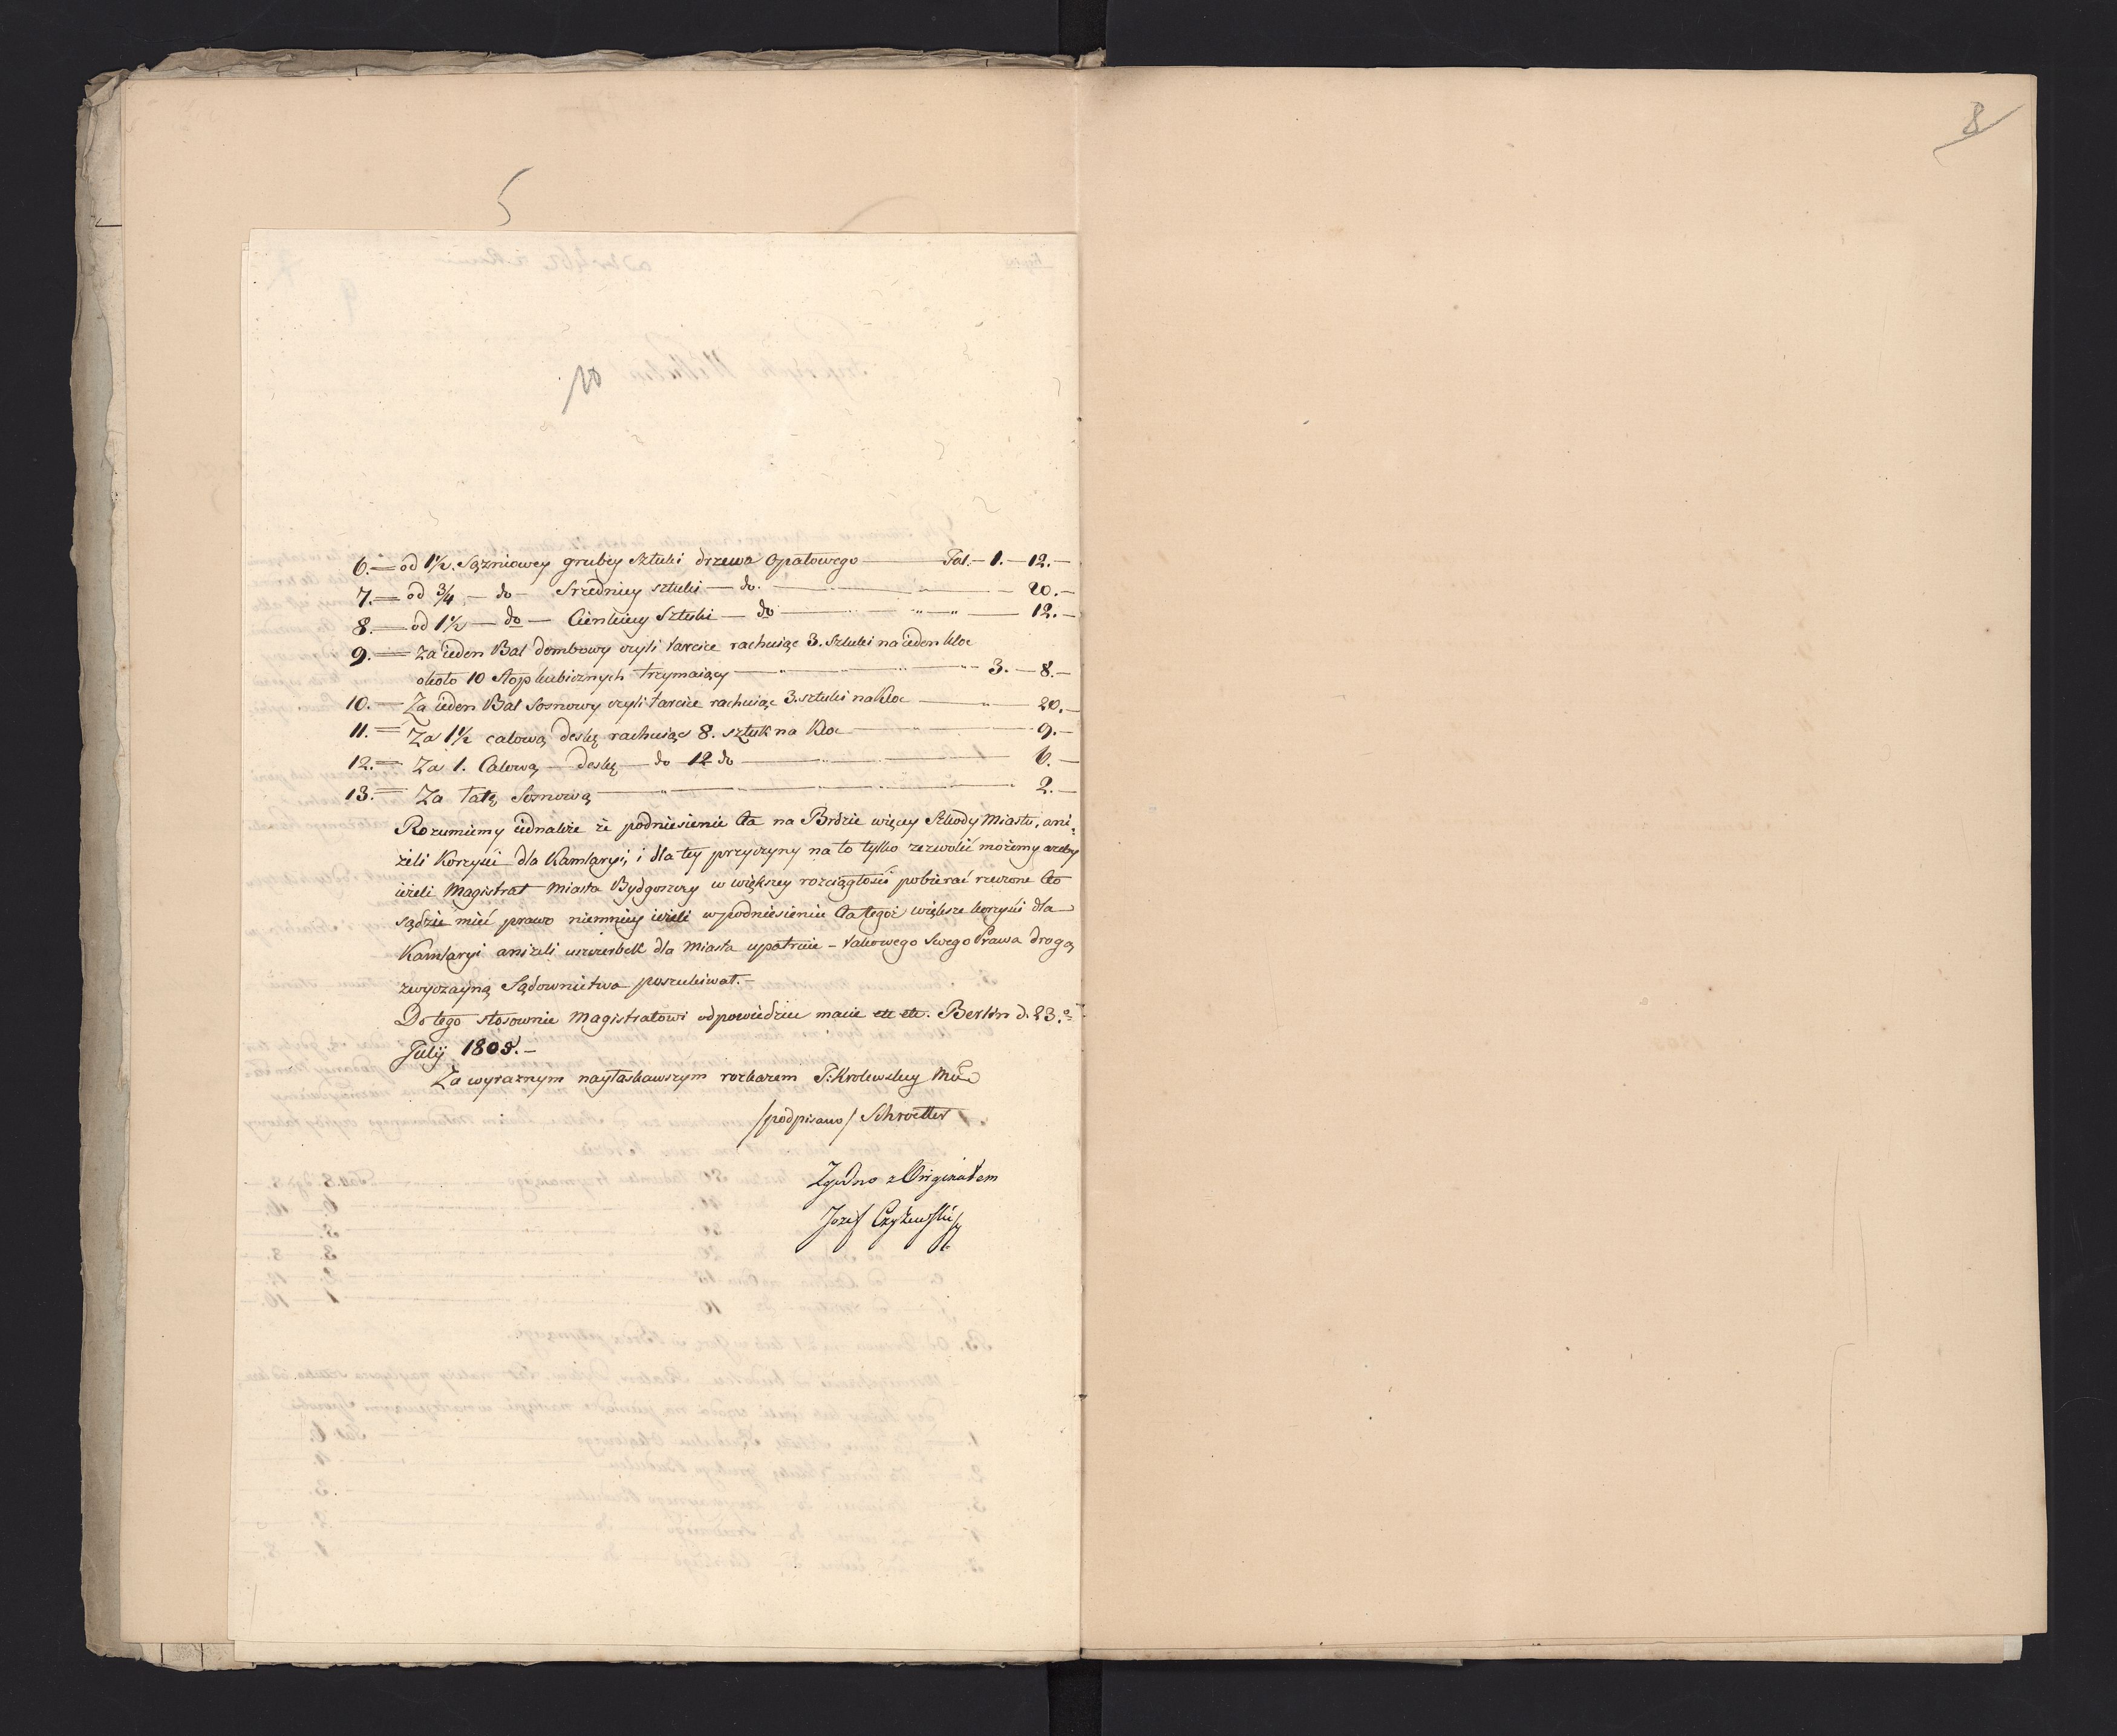 5
10
6. — od 1½. Sążniowey grubey Sztuki drzewa Opałowego — Tal. — 1. — 12. —
7. — od ¾ — do — Sredniey sztuki — do. — " — 20. —
8. — od 1½ — do — Cienkiey Sztuki — do — " — " — 12. —
9. — Za ieden Bal dombowy czyli tarcice rachuiąc 3. Sztuki na ieden kloc
około 10 Stop kubicznych trzymaiący — " — " — 3. — 8. —
10. — Za ieden Bal Sosnowy czyli tarcice rachuiąc 3. sztuki na Kloc — " — 20. —
11. — Za 1½ calową deskę rachuiąc 8. sztuk na Kloc — " — 9. —
12. — Za 1. Calową — deskę — do 12 do — " — " — 6. —
13. — Za łatę Sosnową — " — " — " — 2. —
Rozumiemy iednakże że podniesienie Cła na Brdzie więcey Szkody Miastu, ani-
żeli Korzyści dla Kamlaryi, i dla tey przyczyny na to tylko zezwolić możemy ażeby
ieżeli Magistrat Miasta Bydgoszczy w większey rozciągłości pobierać rzeczone Cło
sądzie mieć prawo niemniey ieżeli w podniesieniu Cła tegoż większe korzyści dla
Kamlaryi aniżeli uszczerbek dla Miasta upatruie — takowego Swego Prawa drogą
zwyczayną Sądownictwa poszukiwał. —
Do tego stosownie Magistratowi odpowiedzieć macie etc etc. Berlin d. 23.
Julij 1808. —
Za wyraznym nayłaskawszym rozkazem J: Krolewskiey Mci
/podpisano/ Schroetter
Zgodno z Originałem
Jozef Czyżewski
8